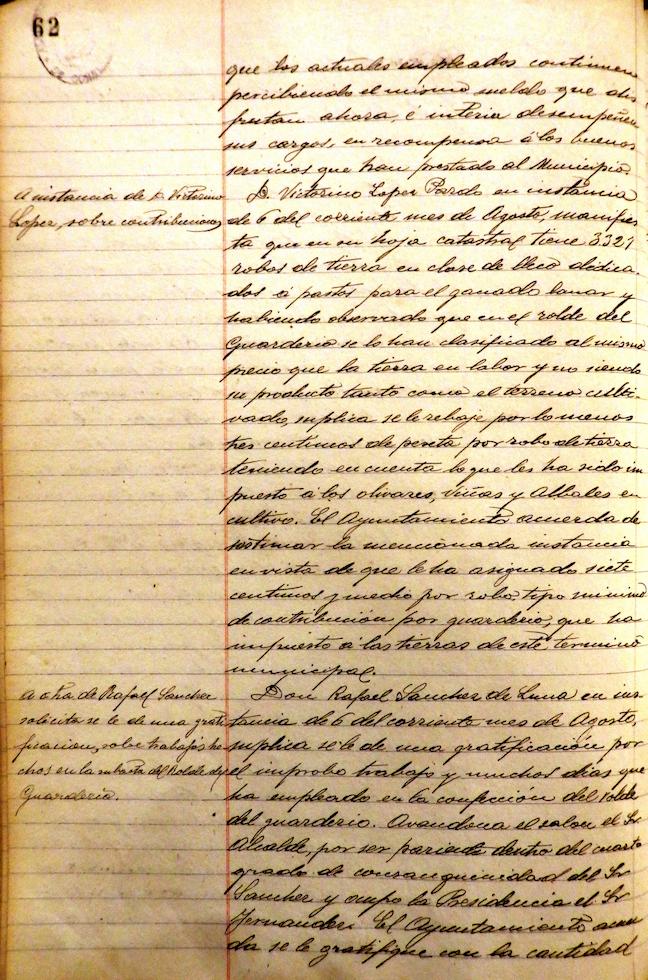 62
que los actuales empleados continuen
percibiendo el mismo sueldo que dis
frutan ahora, é interin desempeñen
sus cargos, en recompensa á los buenos
servicios que han prestado al Municipio.
A instancia de D. Victorino
Lopez, sobre contribuciones
D. Victorino Lopez Pardo en instancia
de 6 del corriente mes de Agosto, manifies
ta que en su hoja catastral tiene 3321
robos de tierra en clase de lleco dedica-
dos á pastos para el ganado lanar y
habiendo observado que en el rolde del
Guarderio se lo han clasificado al mismo
precio que la tierra en labor y no siendo
su producto tanto como el terreno culti-
vado, suplica se le rebaje por lo menos
tres centimos de peseta por robo de tierra
teniendo en cuenta lo que les ha sido im
puesto á los olivares, viñas y Albales en
cultivo. El Ayuntamiento acuerda de
sestimar la mencionada instancia
en vista de que le ha asignado siete
centimos y medio por robo, tipo minimo
de contribución por guarderio, que ha
impuesto á las tierras de este termino
municipal.
A otra de Rafael Sanchez
solicita se le de una grati
ficacion, sobre trabajos he
chos en la subasta del Rolde del
Guarderio.
Don Rafael Sanchez de Luna en ins-
tancia de 6 del corriente mes de Agosto,
suplica se le de una gratificación por
el improbo trabajo y muchos dias que
ha empleado en la confección del rolde
del guarderio. Avandona el salon el Sr
Alcalde, por ser pariente dentro del cuarto
grado de consanguinidad del Sr
Sanchez y ocupo la Presidencia el Sr
Fernandez. El Ayuntamiento acuer
da se le gratifique con la cantidad